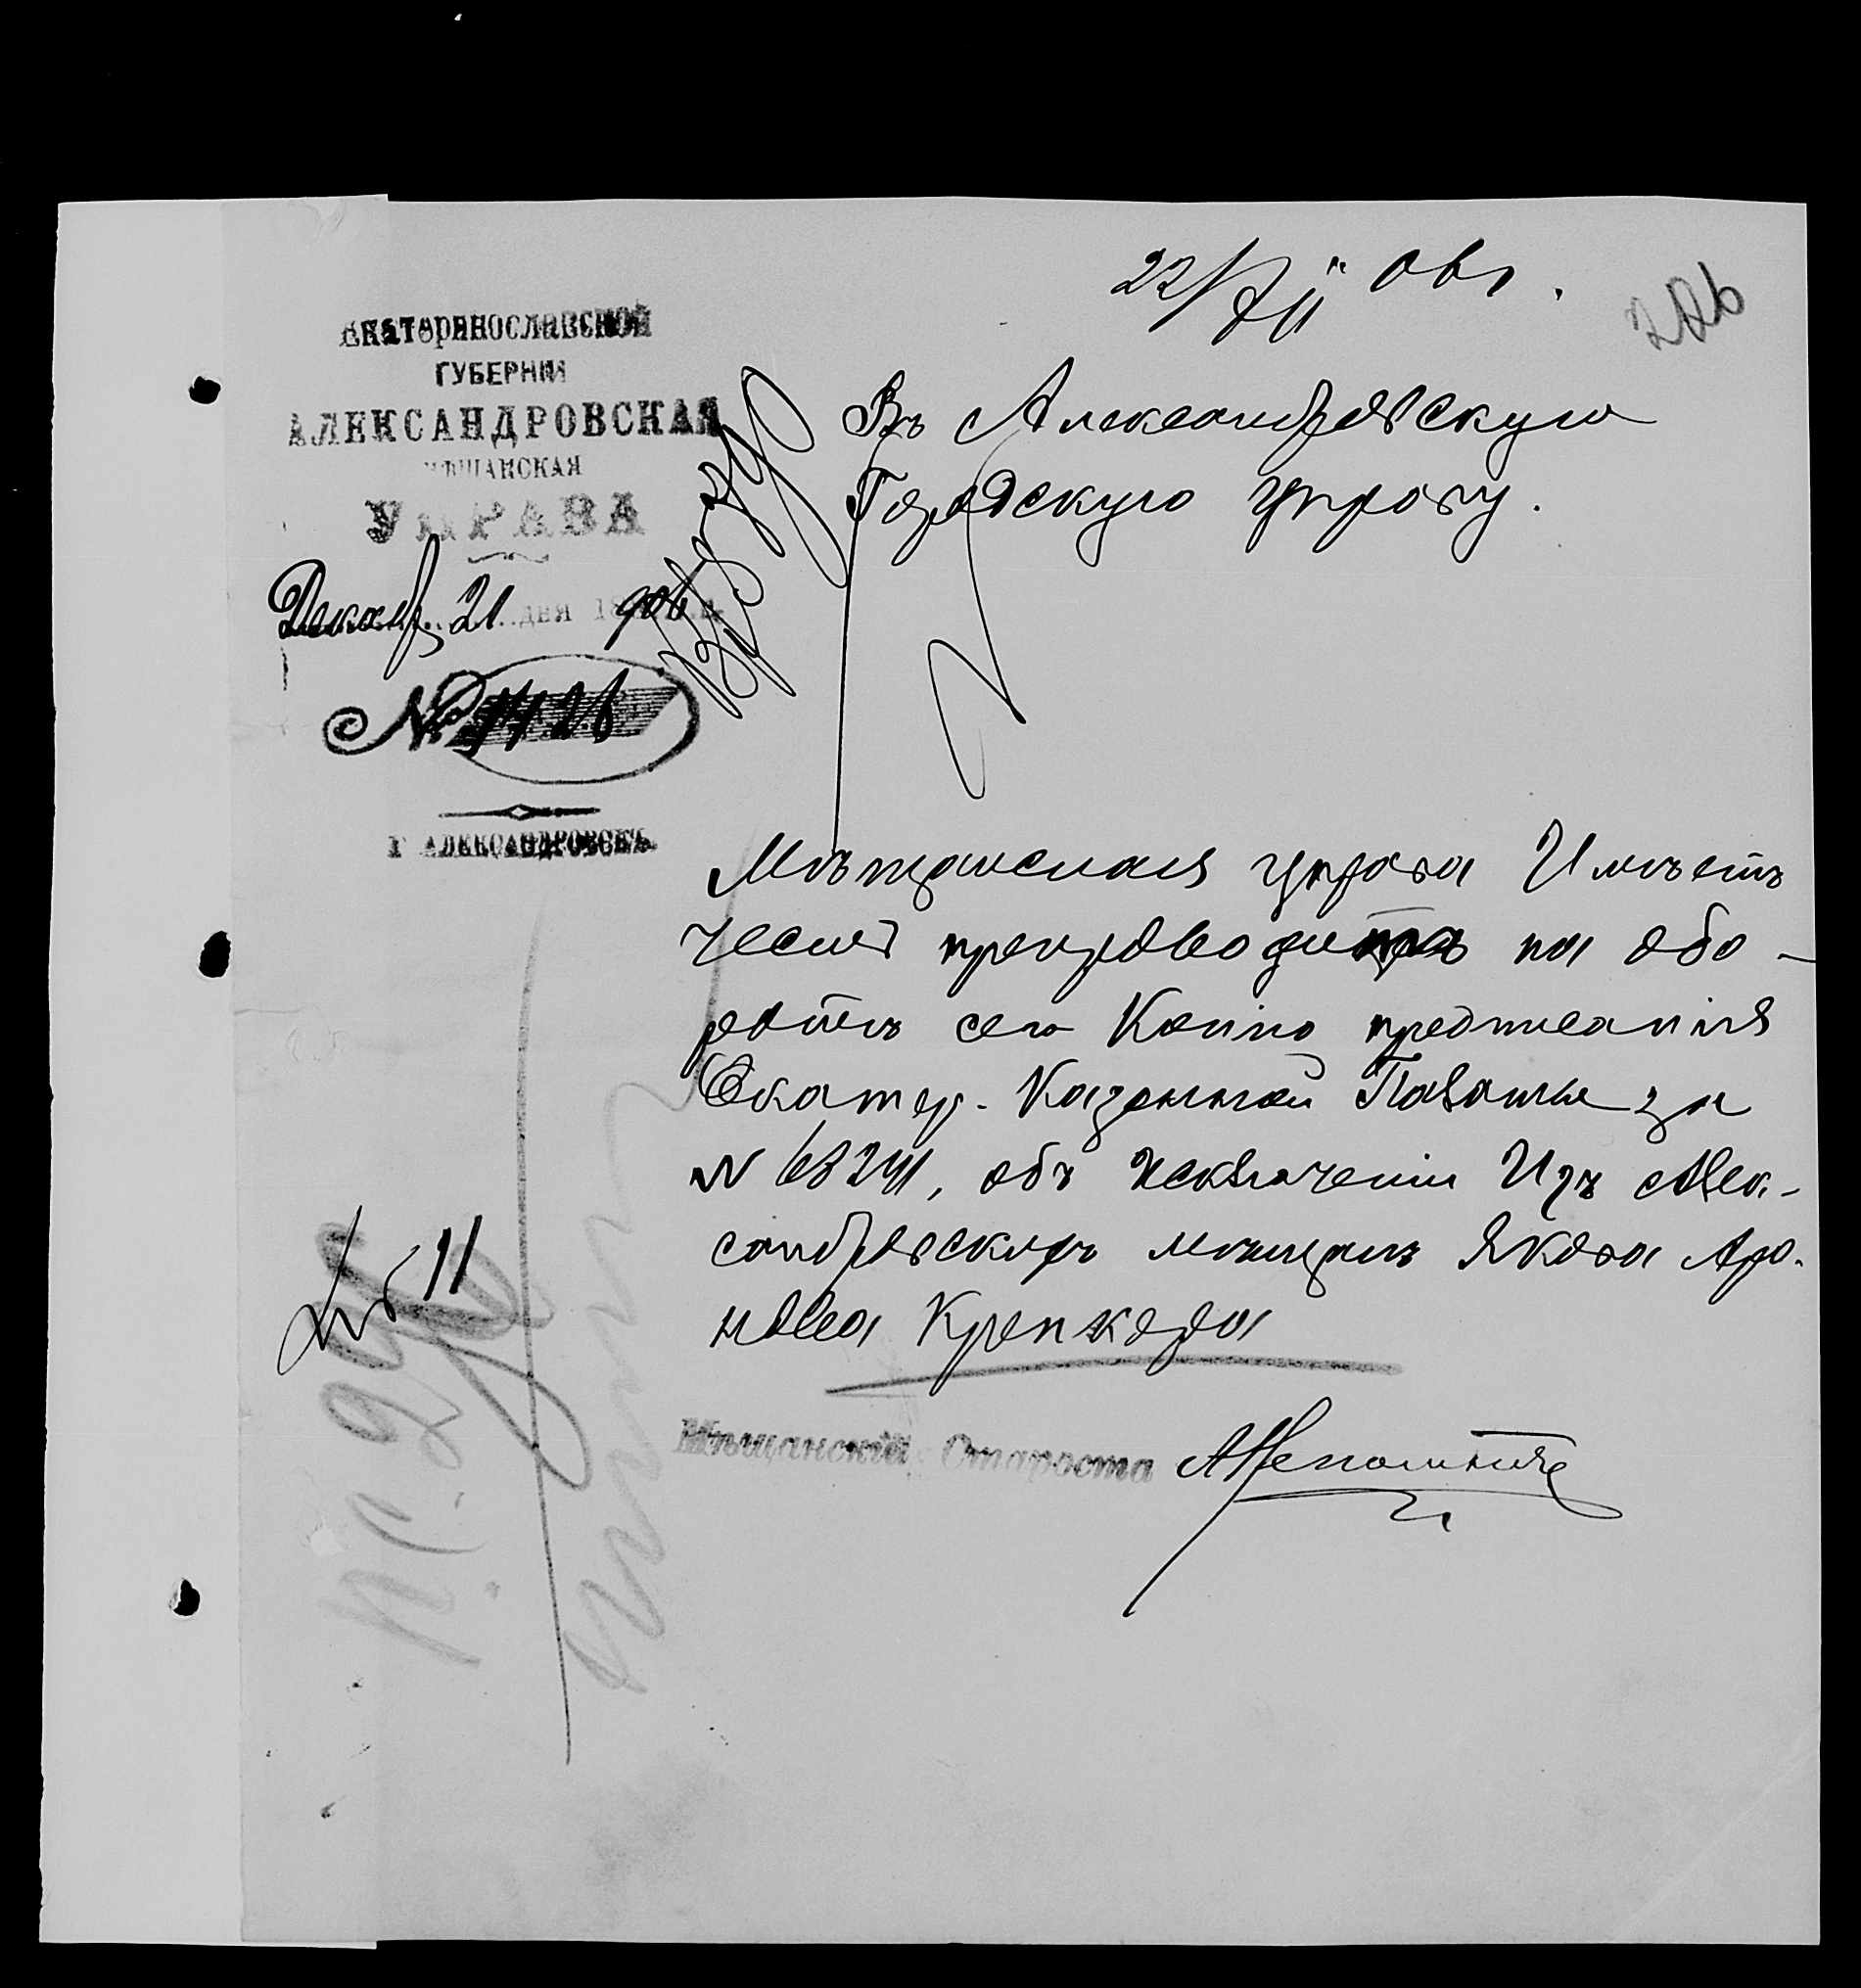 22/XII 06 г.
226
ЕКАТЕРИНОСЛАВСКОЙ
ГУБЕРНІИ
АЛЕКСАНДРОВСКАЯ
МѢЩАНСКАЯ
УПРАВА
Декабр 21 дня 1906 г.
№ 1428
Г АЛЕКСАНДРОВСКЪ
Въ Александровскую
Городскую Управу.
Мѣщанская управа Имѣетъ
честь препроводить на обо-
ротѣ сего Копію предписанія
Екатер. Казенной Палаты за
N 63241, объ исключеніи Изъ Алек-
сандровскихъ мѣщанъ Якова Аро-
нова Крепкера
Мѣщанскій Староста